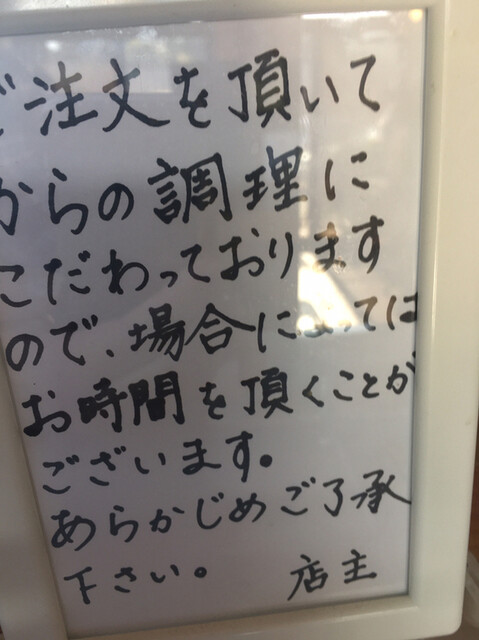 ご注文を頂いて
からの調理に
こだわっております
ので、場合によっては
お時間を頂くことが
ございます。
あらかじめご了承
下さい。 店主